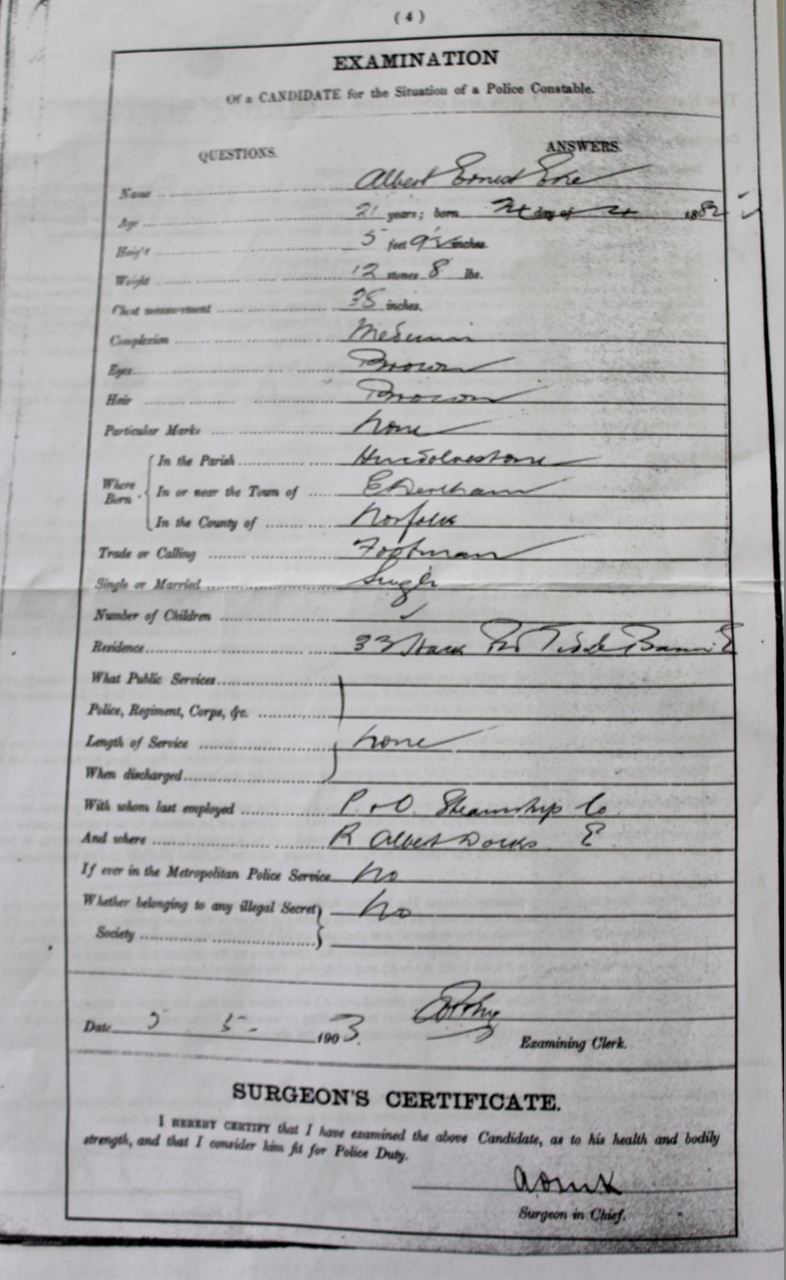 ( 4 )
EXAMINATION
Of a CANDIDATE for the Situation of a Police Constable.
QUESTIONS. ANSWERS.
Name Albert Ernest Eke
Age 21 years; born day of 1882
Height 5 feet 9½ inches.
Weight 12 stones 8 lbs.
Chest measurement 38 inches.
Complexion Medium
Eyes Brown
Hair Brown
Particular Marks None
Where Born In the Parish Hindolvestone
In or near the Town of E Dereham
In the County of Norfolk
Trade or Calling Footman
Single or Married Single
Number of Children ✓
Residence 33 Rd E
What Public Services
Police, Regiment, Corps, &c.
Length of Service None
When discharged
With whom last employed P & O. Steamship Co.
And where R Albert Docks. E
If ever in the Metropolitan Police Service No
Whether belonging to any illegal Secret No
Society
Date 5 5- 1903.
Examining Clerk.
SURGEON'S CERTIFICATE.
I HEREBY CERTIFY that I have examined the above Candidate, as to his health and bodily
strength, and that I consider him fit for Police Duty.
Surgeon in Chief.